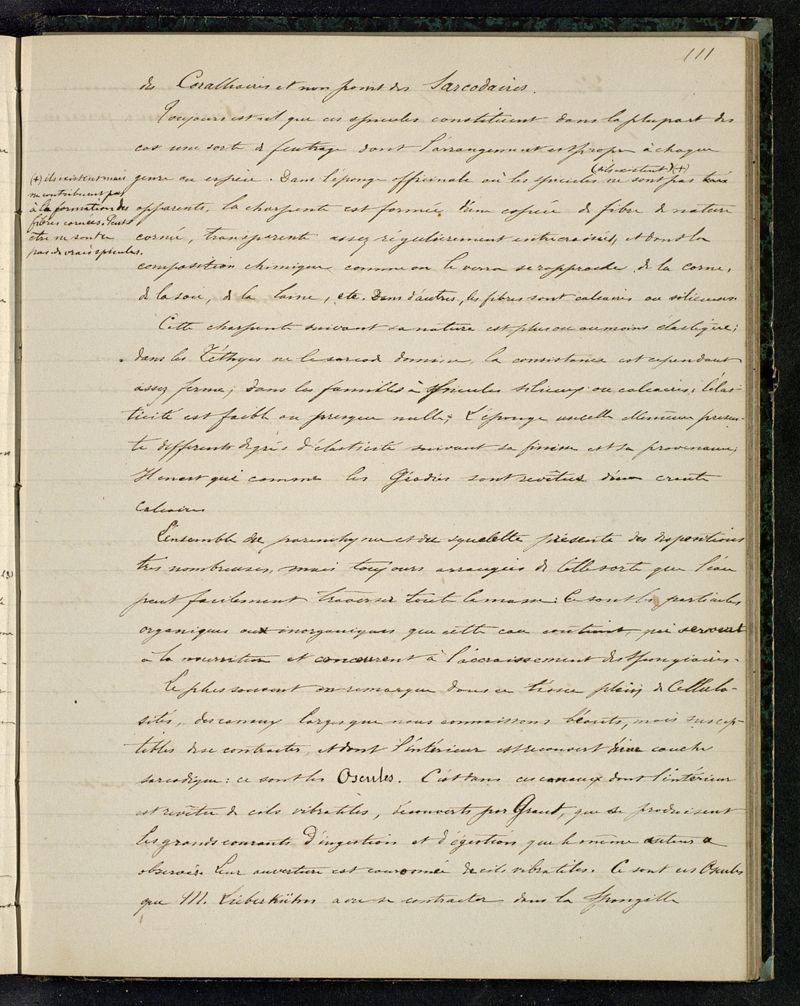 111
des Coralliaires et non point des Sarcodaires.
Toujours est-il que ces spicules constituent dans la plupart des
cas une sorte de feutrage dont l'arrangement est propre à chaque
genre ou espèce. Dans l'éponge officinale où les spicules ne sont pas
(ils existent (+)
(+) ils existent mais
ne contribuent pas
à la formation des
fibres cornées. Peut
être ne sont ce
pas de vrais spicules.
apparents, la charpente est formée d'une espèce de fibre de nature
cornée, transparente assez régulièrement entrecroisées, et dont la
composition chimique comme on le verra se rapproche de la corne,
de la soie, de la laine, etc. Dans d'autres, les fibres sont calcaires ou siliceuses
Cette charpente suivant sa nature est plus ou au moins élastique;
dans les Téthyes où le sarcode domine, la consistance est cependant
assez ferme; dans les familles à spicules siliceux ou calcaires, l'élas-
ticité est faible ou presque nulle; L'éponge usuelle elle même présen-
te différents degrés d'élasticité suivant sa finesse et sa provenance;
Il en est qui comme les Géodies sont revêtues d'une croute
calcaire
L'ensemble du parenchyme et du squelette présente des dispositions
très nombreuses, mais toujours arrangées de telle sorte que l'eau
peut facilement traverser toute la masse: Ce sont les particules
organiques ou inorganiques que cette eau contient, qui servent
à la nourriture et concourent à l'accroissement des Spongiaires.
Le plus souvent on remarque dans ce tissu plein de Cellulo-
sités, des canaux larges que nous connaissons béants, mais suscep-
tibles de se contracter, et dont l'intérieur est recouvert d'une couche
sarcodique: ce sont les Oscules. C'est dans ces canaux dont l'intérieur
est revêtu de cils vibratiles, découverts par Grant, que se produisent
les grands courants d'ingestion et d'égestion que le même auteur a
observés. Leur ouverture est couronnée de cils vibratiles. Ce sont ces Oscules
que M. Lieberkühn a vu se contracter dans la Spongille